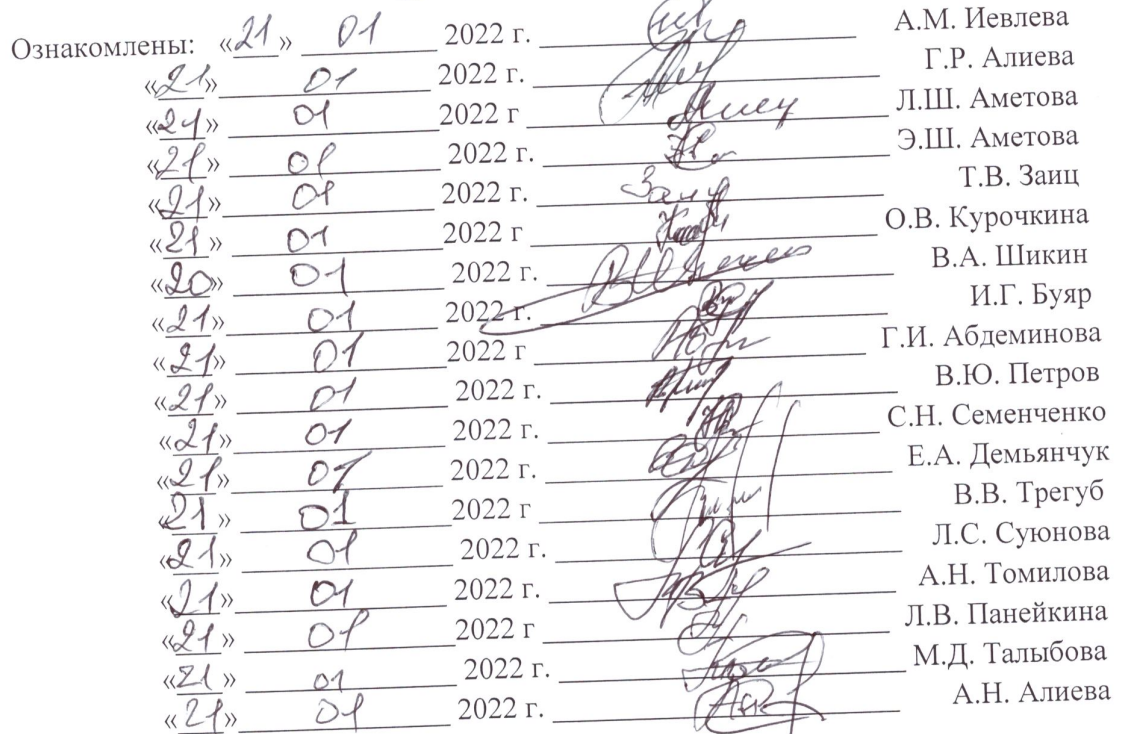 Ознакомлены: «21» 01 2022 г. А.М. Иевлева
«21» 01 2022 г. Г.Р. Алиева
«21» 01 2022 г Л.Ш. Аметова
«21» 01 2022 г. Э.Ш. Аметова
«21» 01 2022 г. Т.В. Заиц
«21» 01 2022 г О.В. Курочкина
«20» 01 2022 г. В.А. Шикин
«21» 01 2022 г. И.Г. Буяр
«21» 01 2022 г Г.И. Абдеминова
«21» 01 2022 г. В.Ю. Петров
«21» 01 2022 г. С.Н. Семенченко
«21» 01 2022 г. Е.А. Демьянчук
«21» 01 2022 г В.В. Трегуб
«21» 01 2022 г. Л.С. Суюнова
«21» 01 2022 г. А.Н. Томилова
«21» 01 2022 г Л.В. Панейкина
«21» 01 2022 г. М.Д. Талыбова
«21» 01 2022 г. А.Н. Алиева